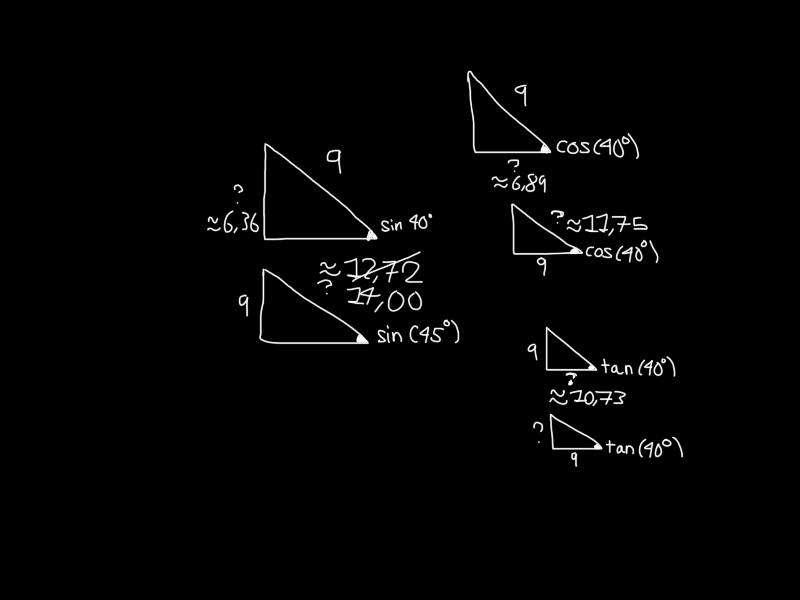 9
?
≈6,36
sin 40°
≈12,72
?
14,00
9
sin (45°)
9
cos(40°)
?
≈6,89
? ≈11,75
cos(40°)
9
9
tan(40°)
?
≈10,73
?
tan(40°)
9